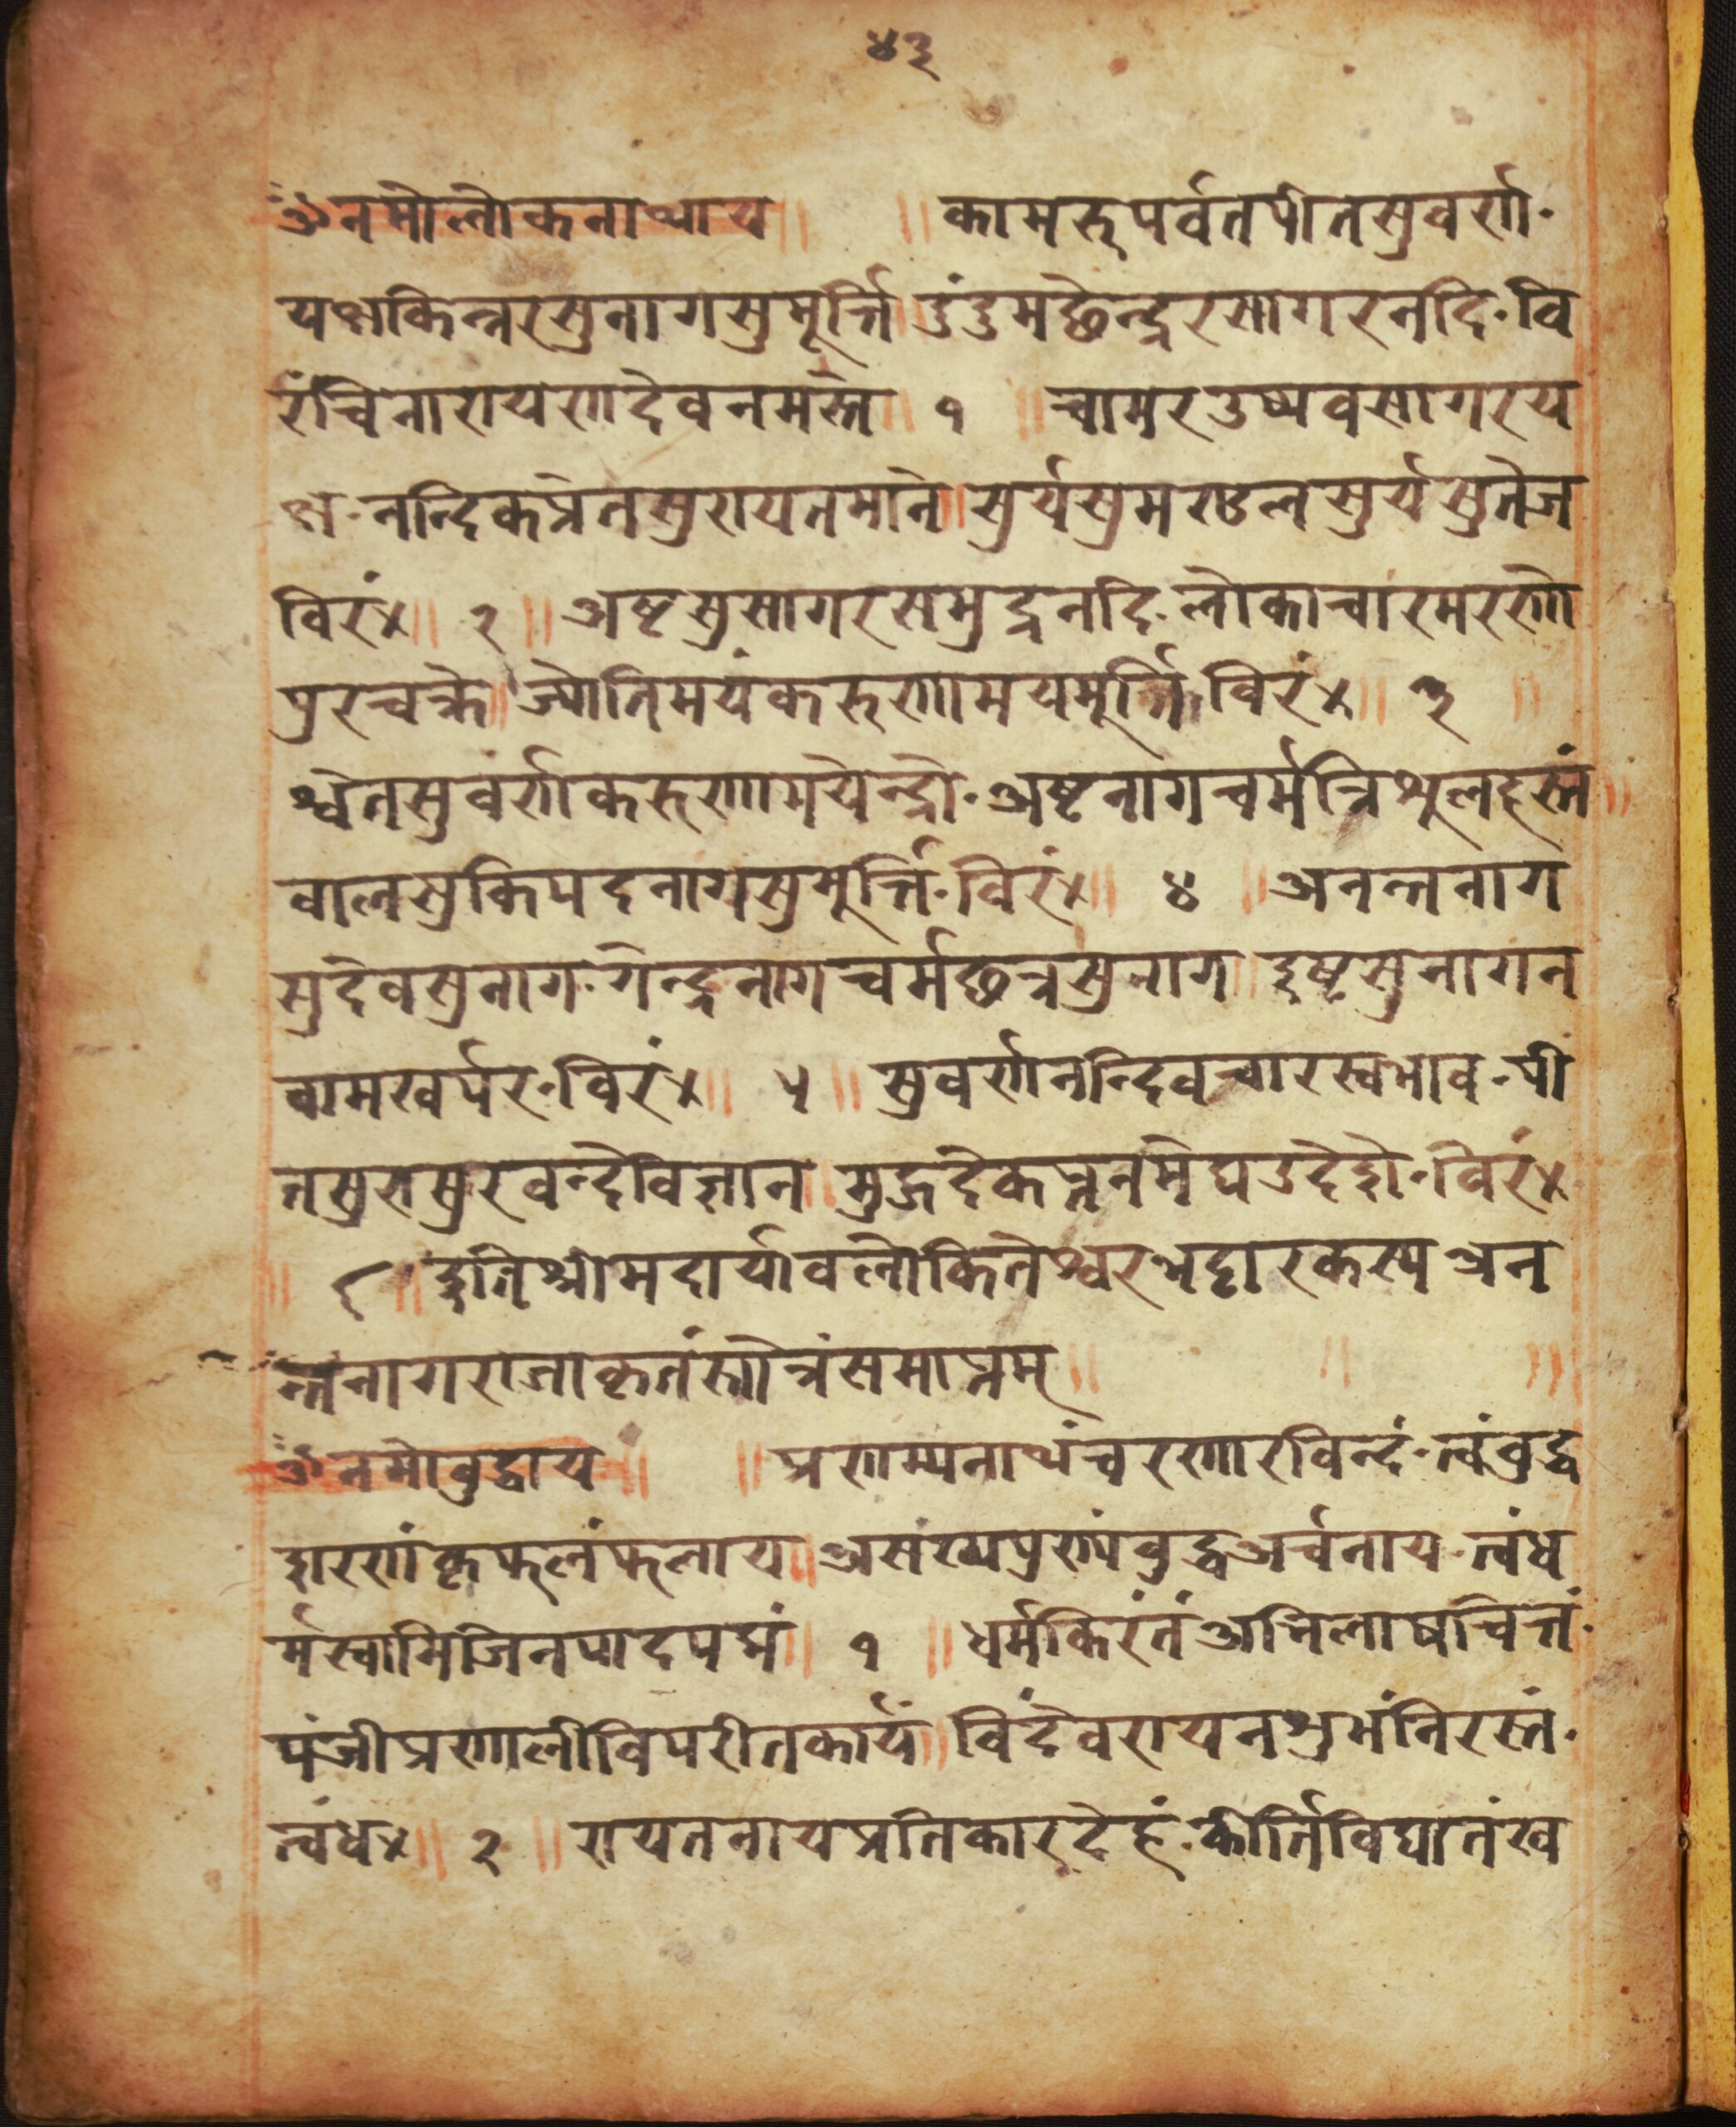 ४३
ॐ नमो लोकनाथाय ॥ ॥ कामरुपर्वतपीतसुवर्ण·
यक्षकिन्नरसुनागसुमूर्त्ति । डुंडुमछेन्द्ररसागरनदि·वि
रंचिनारायणदेवनमस्ते ॥ १ ॥ चामरउष्यवसागरय
क्ष·नन्दिकप्रेतसुरायतमाने । सुर्यसुमण्डलसुर्यसुतेज
विरं× ॥ २ ॥ अष्टसुसागरसमुद्रनदि·लोकाचारमरणे
प्ररचक्रे । ज्योतिमयंकरुणामयमूर्त्ति विरं× ॥ ३ ॥
श्वेतसुवर्णकरुणामयेन्द्रो·अष्टनागचर्मत्रिशुलहस्तं ॥
वालसुकिपदनागसुमूर्त्ति·विरं× ॥ ४ ॥ अनन्तनाग
सुदेवसुनाग·गेन्द्रनागचर्मछत्रसुनाग । दुष्टसुनागन
वामखर्पर·विरं× ॥ ५ ॥ सुवर्णनन्दिवचारस्वभाव·पी
तसुरुसुरवन्देविज्ञान । मुद्गदेकन्ननमेघउदेद्रो·विरं×
॥ ६ ॥ इतिश्रीमदार्यावलोकितेश्वरभट्टारकस्य अन
न्तनागराजाकृतंस्तोत्रंसमाप्तम् ॥ ॥ ॥
ॐ नमो वुद्धाय ॥ ॥ प्रणम्यनाथंचरणारविन्दं·त्वंवुद्ध
शरणंकृफलंफलाय । असंख्यप्रुण्यंवुद्धअर्चनाय·त्वंध
र्मस्वामिजिनपादपद्मं ॥ १ ॥ धर्मकिरंतंअभिलाषचित्तं·
पंजीप्रणालीविपरीतकार्यं । विदंवरायनशुभंनिरस्तं·
त्वंध× ॥ २ ॥ रायतनायप्रतिकारदेहं·कीर्तिविघातंख